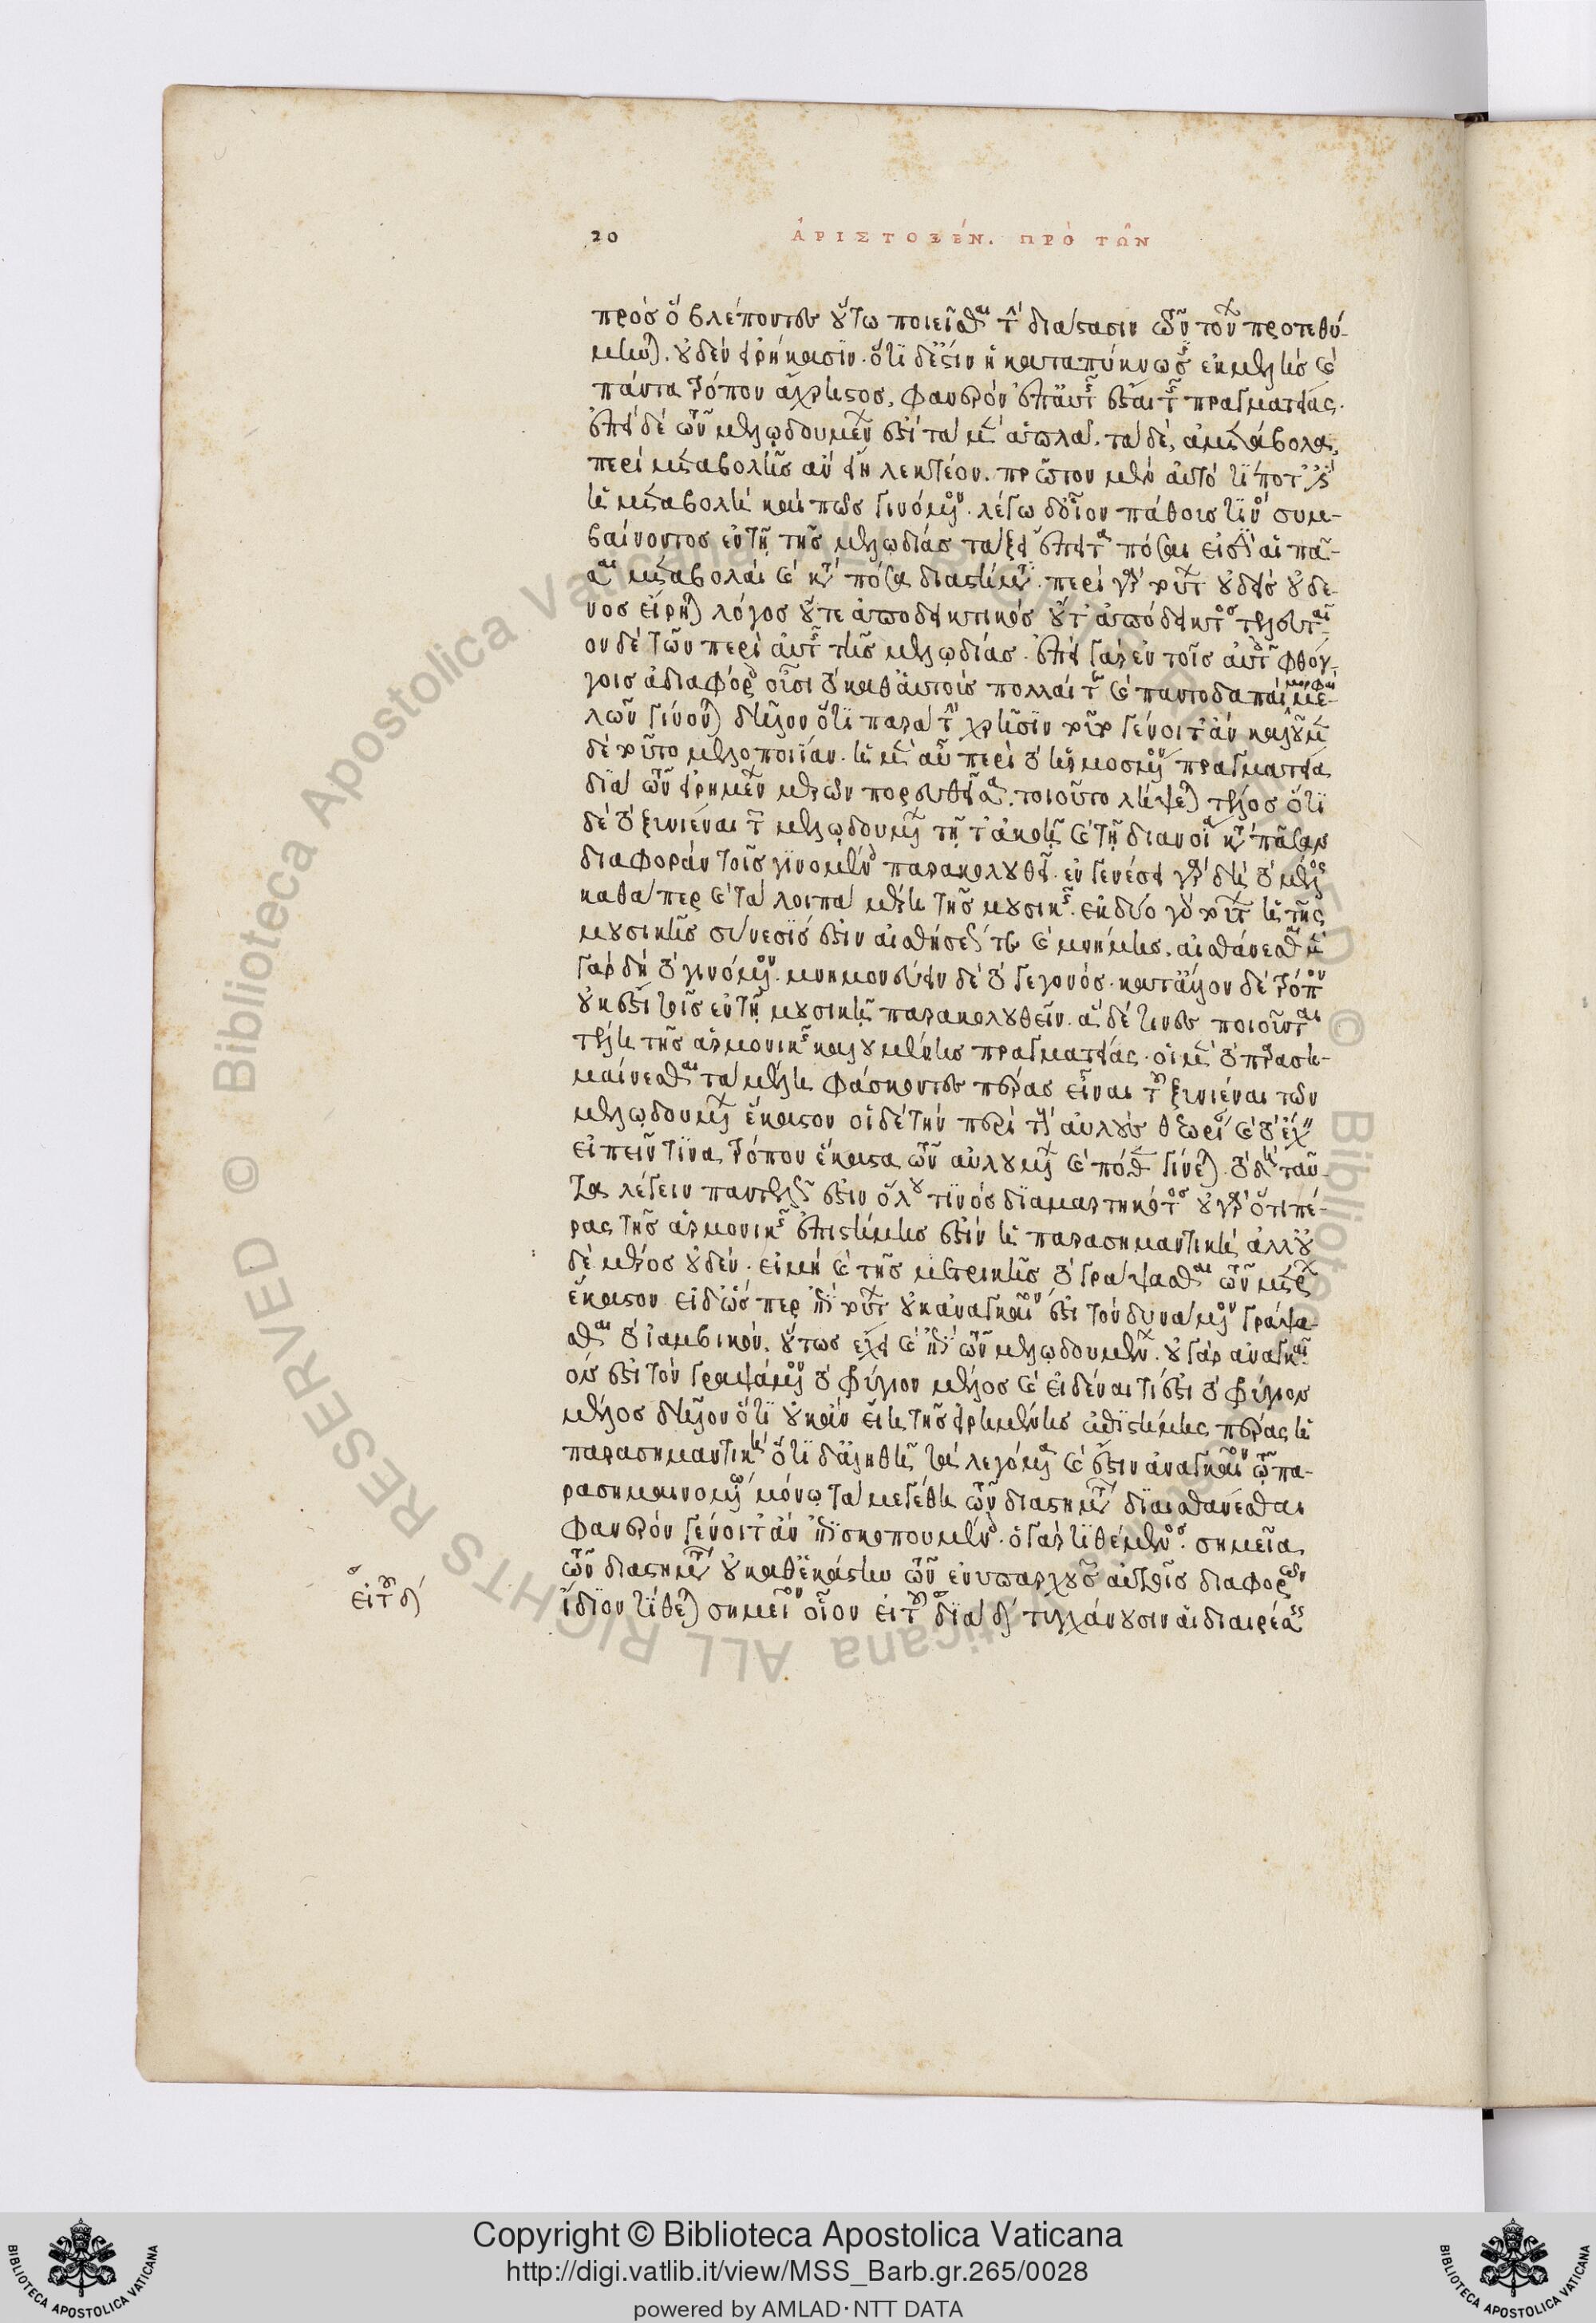 20 ἈΡΙΣΤΟΞΈΝ. ΠΡῸ ΤΩ͂Ν
πρὸς ὃ βλέποντες οὕτω ποιεῖσθαι τὴν διάτασιν τῶν τόνων προτεθύ-
μηνται. οὐδὲν εἰρήκασιν. ὅτι δ' ἔστιν ἡ καταπύκνωσις ἐκμελὴς καὶ
πάντα τρόπον ἄχρηστος, φανερὸν ἐπ' αὐτῆς ἔσται τῆς πραγματείας.
ἐπεὶ δὲ τῶν μελῳδουμένων ἐστὶ τὰ μὲν ἁπλᾶ. τὰ δὲ, ἀμετάβολα,
περὶ μεταβολῆς ἂν εἴη λεκτέον. πρῶτον μὲν αὐτὸ τί ποτ' ἐστὶν
ἡ μεταβολὴ καὶ πῶς γινόμενον. λέγω δ' οἷον πάθους τινὸς συμ-
βαίνοντος ἐν τῇ τῆς μελῳδίας τάξει ἔπειτα πόσαι εἰσὶν αἱ πᾶ-
σαι μεταβολαὶ καὶ κατὰ πόσα διαστήματα. περὶ γὰρ τούτων οὐδεὶς οὐδε-
νὸς εἴρηται λόγος οὔτε ἀποδεικτικὸς οὔτ' ἀπόδεικτος τελευταῖ-
ον δὲ τῶν περὶ αὐτῆς τῆς μελῳδίας. ἐπεὶ γὰρ ἐν τοῖς αὐτοῖς φθόγ-
γοις ἀδιαφόροις οὖσι τὸ καθ' αὑτοὺς πολλαί τε καὶ παντοδαπαὶ μορφαὶ με-
λῶν γίνονται δῆλον ὅτι παρὰ τὴν χρῆσιν τοῦτο γένοιτ' ἂν καλοῦμεν
δὲ τοῦτο μελοποιΐαν. ἡ μὲν οὖν περὶ τὸ ἡρμοσμένον πραγματεία
διὰ τῶν εἰρημένων μερῶν πορευθεῖσα. τοιοῦτο λήψεται τέλος ὅτι
δὲ τὸ ξυνιέναι τῶν μελῳδουμένων τῇ τ' ἀκοῇ καὶ τῇ διανοίᾳ κατὰ πᾶσαν
διαφορὰν τοῖς γινομένοις παρακολουθεῖν. ἐν γενέσει γὰρ δὴ τὸ μέλος
καθάπερ καὶ τὰ λοιπὰ μέρη τῆς μουσικῆς. ἐκ δύο γὰρ τούτων ἡ τῆς
μουσικῆς σύνεσίς ἐστιν αἰσθήσεώς τε καὶ μνήμης. αἰσθάνεσθαι μὲν
γὰρ δεῖ τὸ γινόμενον. μνημονεύειν δὲ τὸ γεγονός. κατ' ἄλλον δὲ τρόπον
οὐκ ἔστι τοῖς ἐν τῇ μουσικῇ παρακολουθεῖν. ἃ δέ τινες ποιοῦνται
τέλη τῆς ἁρμονικῆς καλουμένης πραγματείας. οἱ μὲν τὸ παραση-
μαίνεσθαι τὰ μέλη φάσκοντες πέρας εἶναι τοῦ ξυνιέναι τῶν
μελῳδουμένων ἕκαστον οἱ δὲ τὴν περὶ τοὺς αὐλοὺς θεωρίαν καὶ τὸ ἔχειν
εἰπεῖν τίνα τρόπον ἕκαστα τῶν αὐλουμένων καὶ πόθεν γίνεται. τὸ δὴ ταῦ-
τα λέγειν παντελῶς ἐστιν ὅλου τινὸς διαμαρτηκότος οὐ γὰρ ὅτι πέ-
ρας τῆς ἁρμονικῆς ἐπιστήμης ἐστὶν ἡ παρασημαντικὴ ἀλλ' οὐ
δὲ μέρος οὐδέν. εἰ μὴ καὶ τῆς μετρικῆς τὸ γράψασθαι τῶν μέτρων
ἕκαστον εἰ δ' ὥσπερ ἐπὶ τούτων οὐκ ἀναγκαῖόν ἐστι τὸν δυνάμενον γράψα-
σθαι τὸ ἰαμβικὸν. οὕτως ἔχει καὶ ἐπὶ τῶν μελῳδουμένων. οὐ γὰρ ἀναγκαῖ-
ον ἐστὶ τὸν γραψάμενον τὸ Φρύγιον μέλος καὶ εἰδέναι τί ἐστι τὸ Φρύγιον
μέλος δῆλον ὅτι οὐκ ἂν εἴη τῆς εἰρημένης ἐπιστήμης πέρας ἡ
παρασημαντικὴ ὅτι δ' ἀληθῆ τὰ λεγόμενα καὶ ἔστιν ἀναγκαῖον τῷ πα-
ρασημαινομένῳ μόνῳ τὰ μεγέθη τῶν διαστημάτων διαισθάνεσθαι
φανερὸν γένοιτ' ἂν ἐπισκοπουμένοις. ὁ γὰρ τιθέμενος. σημεῖα
τῶν διαστημάτων οὐ καθ' ἑκάστην τῶν ἐνυπαρχουσῶν αὐτοῖς διαφορῶν
ἴδιον τίθεται σημεῖον οἷον εἰ τοῦ διὰ δ' τυγχάνουσιν αἱ διαιρέσεις
εἰ τοῦ δ'